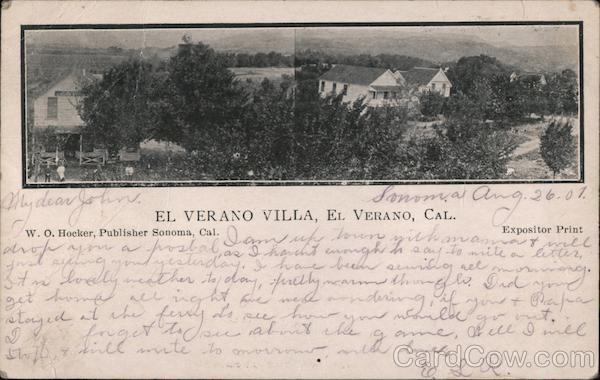 My dear John. Sonoma Aug. 26. 07.
EL VERANO VILLA, EL VERANO, CAL.
W. O. Hocker, Publisher Sonoma, Cal. Expositor Print
I am up town with mama & will
drop you a postal, as I haven't enough to say to write a letter,
just seeing you yesterday. I have been sewing all morning.
It is lovely weather to day, pretty warm though. Did you
get home all right we were wondering, if you & Papa
stayed at the ferry to see how you would go out.
forget to see about the game, Well I will
Stop, & will write to morrow, with love
CardCow.com